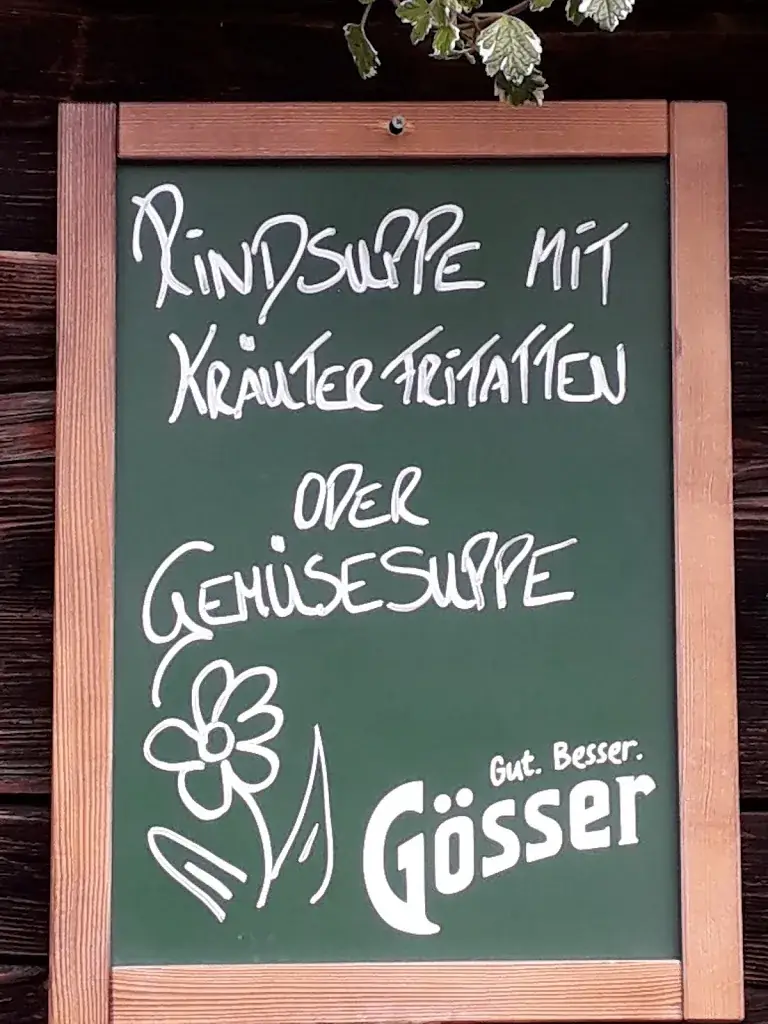 RINDSUPPE MIT
KRÄUTERFRITATTEN
ODER
GEMÜSESUPPE
Gut. Besser.
Gösser